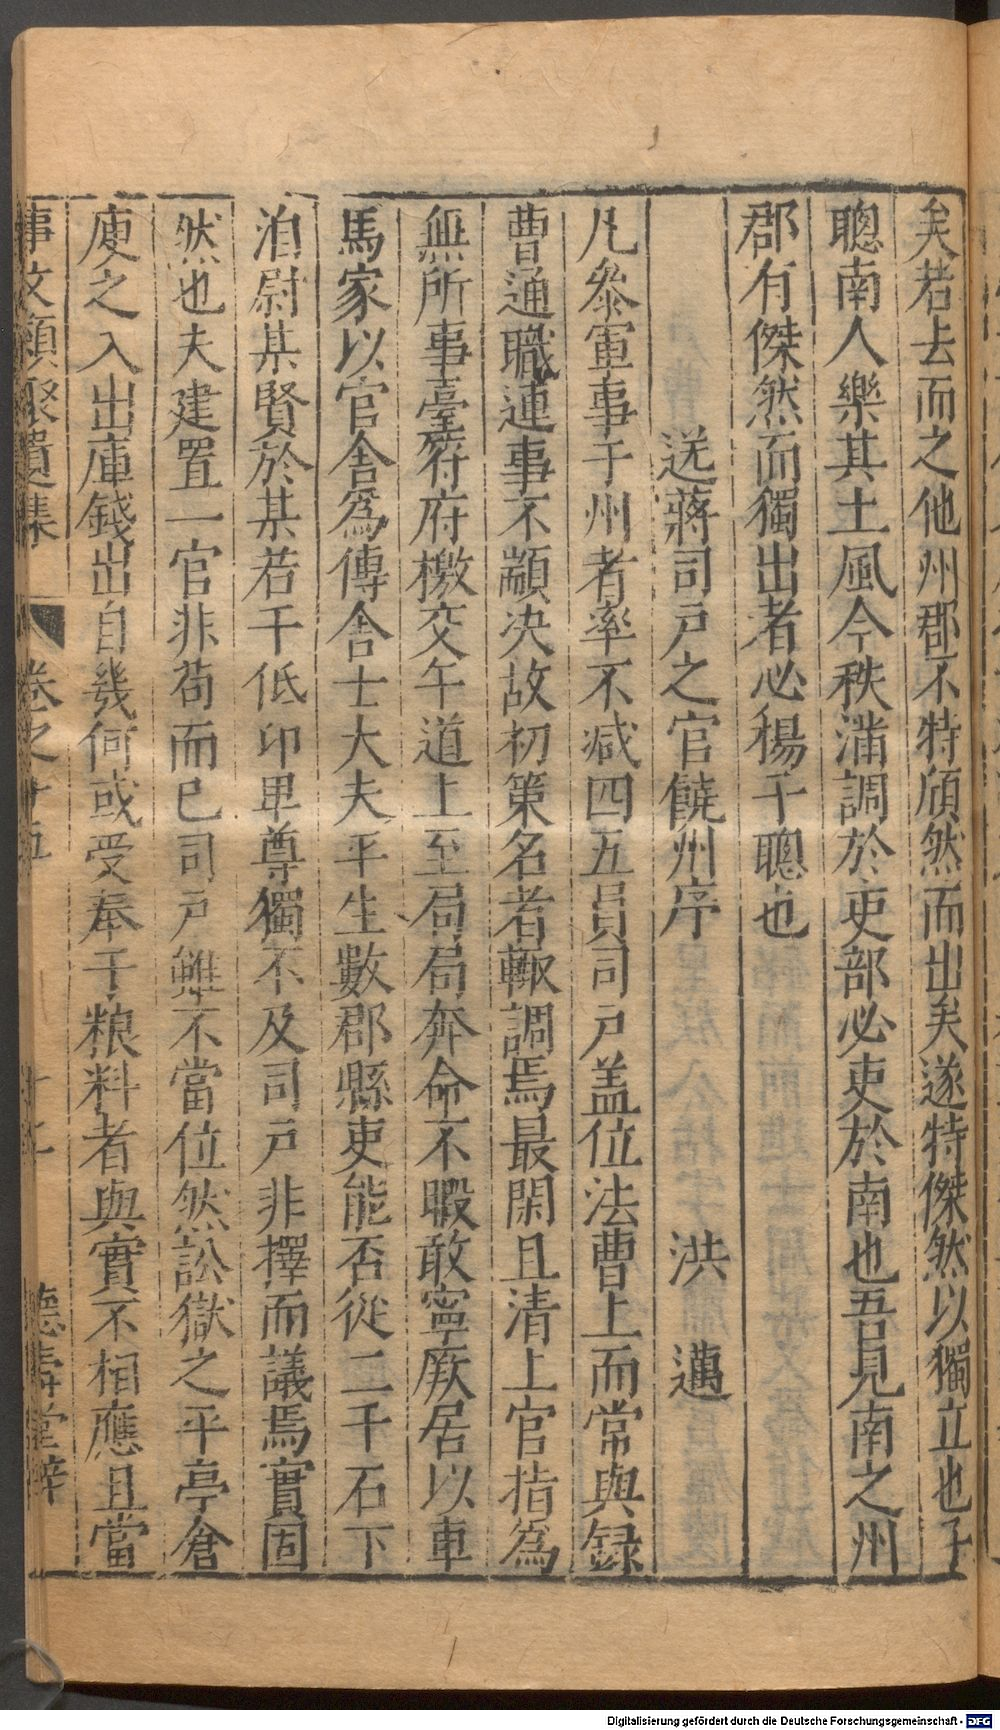 矣若去而之他州郡不特頎然而出矣遂特傑然以獨立也子
聰南人樂其土風今秩滿調於吏部必吏於南也吾見南之州
郡有傑然而獨出者必楊子聰也
送蔣司戶之官饒州序 洪邁
凡參軍事于州者率不减四五員司戶盖位法曹上而常與録
曹通職連事不顓决故初筞名者輙調焉最閑且清上官指為
無所事臺符府檄交午道上至局局奔命不暇敢寧厥居以車
馬家以官舍爲傳舍士大夫平生數郡縣吏能否從二千石下
洎尉某賢於某若干低卬卑尊獨不及司戶非擇而議焉實固
然也夫建置一官非苟而已司戶雖不當位然訟獄之平亭倉
庾之入出庫錢出自幾何或受奉于粮料者與實不相應且當
事文類聚遺集 卷之十五 十七 德壽堂梓
Digitalisierung gefördert durch die Deutsche Forschungsgemeinschaft - DFG